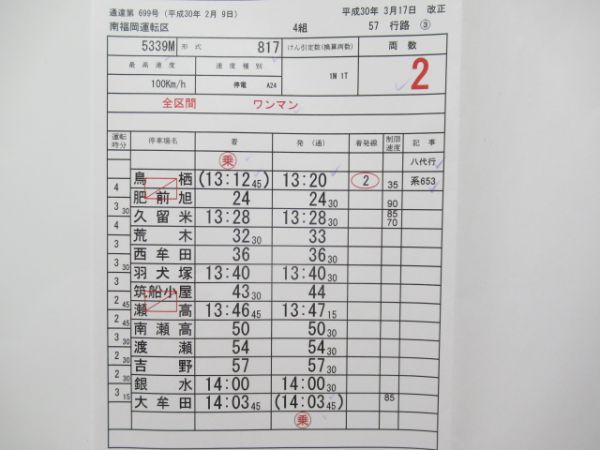 通達第 699号（平成30年 2月 9日）
平成30年 3月17日 改正
南福岡運転区 4組 57 行路 ③
5339M 形式 817 けん引定数(換算両数) 両数
最高速度 速度種別 1M 1T 2
100Km/h 停電 A24
全区間 ワンマン
運転時分 停車場名 着 発（通） 着発線 制限速度 記事
乗 八代行
鳥栖 (13:12 45) 13:20 2 35 系653
4
肥前旭 24 24 30 90
3 30
久留米 13:28 13:28 30 85 70
4
荒木 32 30 33
3
西牟田 36 36 30
3 30
羽犬塚 13:40 13:40 30
3
筑船小屋 43 30 44
2 45
瀬高 13:46 45 13:47 15
2 45
南瀬高 50 50 30
3 30
渡瀬 54 54 30
2 30
吉野 57 57 30
2 30
銀水 14:00 14:00 30
3 15
大牟田 14:03 45 (14:03 45) 85
乗